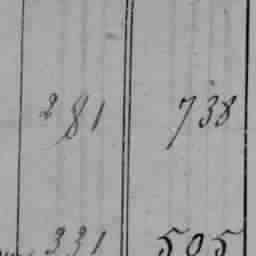 281 738
331 505